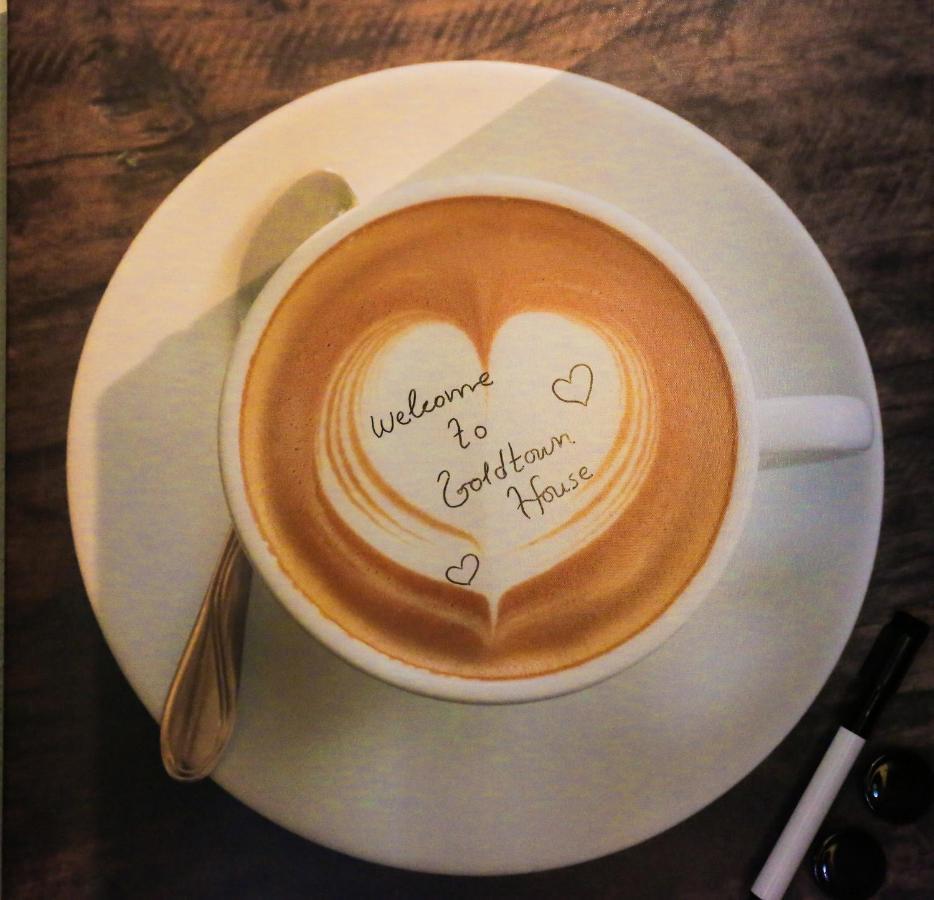 Welcome
to
Goldtown
House